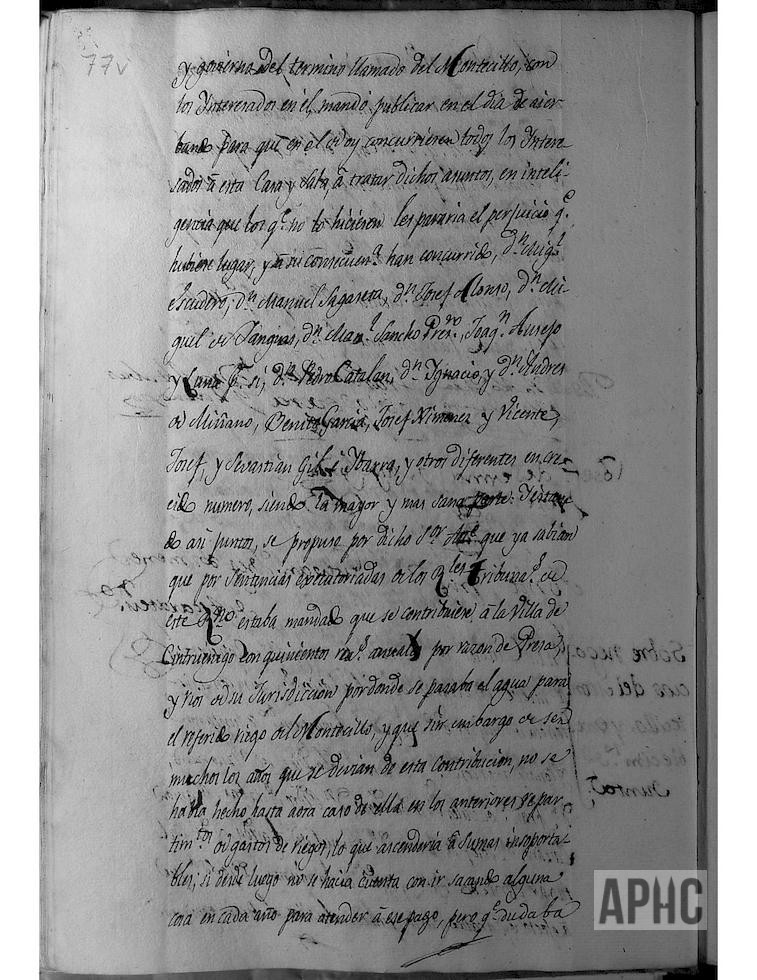 77v
y govierno del termino llamado del Montecillo, con
los Ynteresados en él, mandó publicar en el dia de aier
bando para que en el de oy concurriesen todos los Yntere
sados â esta Casa y Sala, â tratar dichos asuntos, en inteli-
gencia que los q.e no lo hiciesen les pararia el perjuicio q.e
hubiere lugar, y en su consecuen.a han concurrido, d.n Mig.l
Escudero, d.n Manuel Sagaseta, d.n Josef Alonso, d.n Mi-
guel de Sanguas, d.n Man.l Sancho Pres.ro, Joaq.n Ausejo
y Luna p.r si, d.n Pedro Catalan, d.n Ygnacio, y d.n Andres
de Miñano, Benito Garcia, Josef Ximenez y Vicente,
Josef, y Sevastian Gil é Ybarra, y otros diferentes en cre-
cido numero, siendo la mayor y mas sana parte: Y estan
do asi juntos, se propuso por dicho S.or Alc.e que ya sabian
que por Sentencias executoriadas de los R.les Tribuna.s de
este R.no estaba mandado que se contribuiese â la Villa de
Cintruenigo con quinientos rea.s anuales por razon de Presas,
y rios de su Jurisdiccion por donde se pasaba el agua para
el referido riego del Montecillo, y que sin embargo de ser
muchos los años que se devian de esta contribucion, no se
habia hecho hasta aora caso de ella en los anteriores repar-
tim.tos de gastos de riegos, lo que ascenderia â Sumas insoporta-
bles, si desde luego no se hacia cuenta con ir sacando alguna
cosa en cada año para atender â ese pago, pero q.e dudaba
APHC